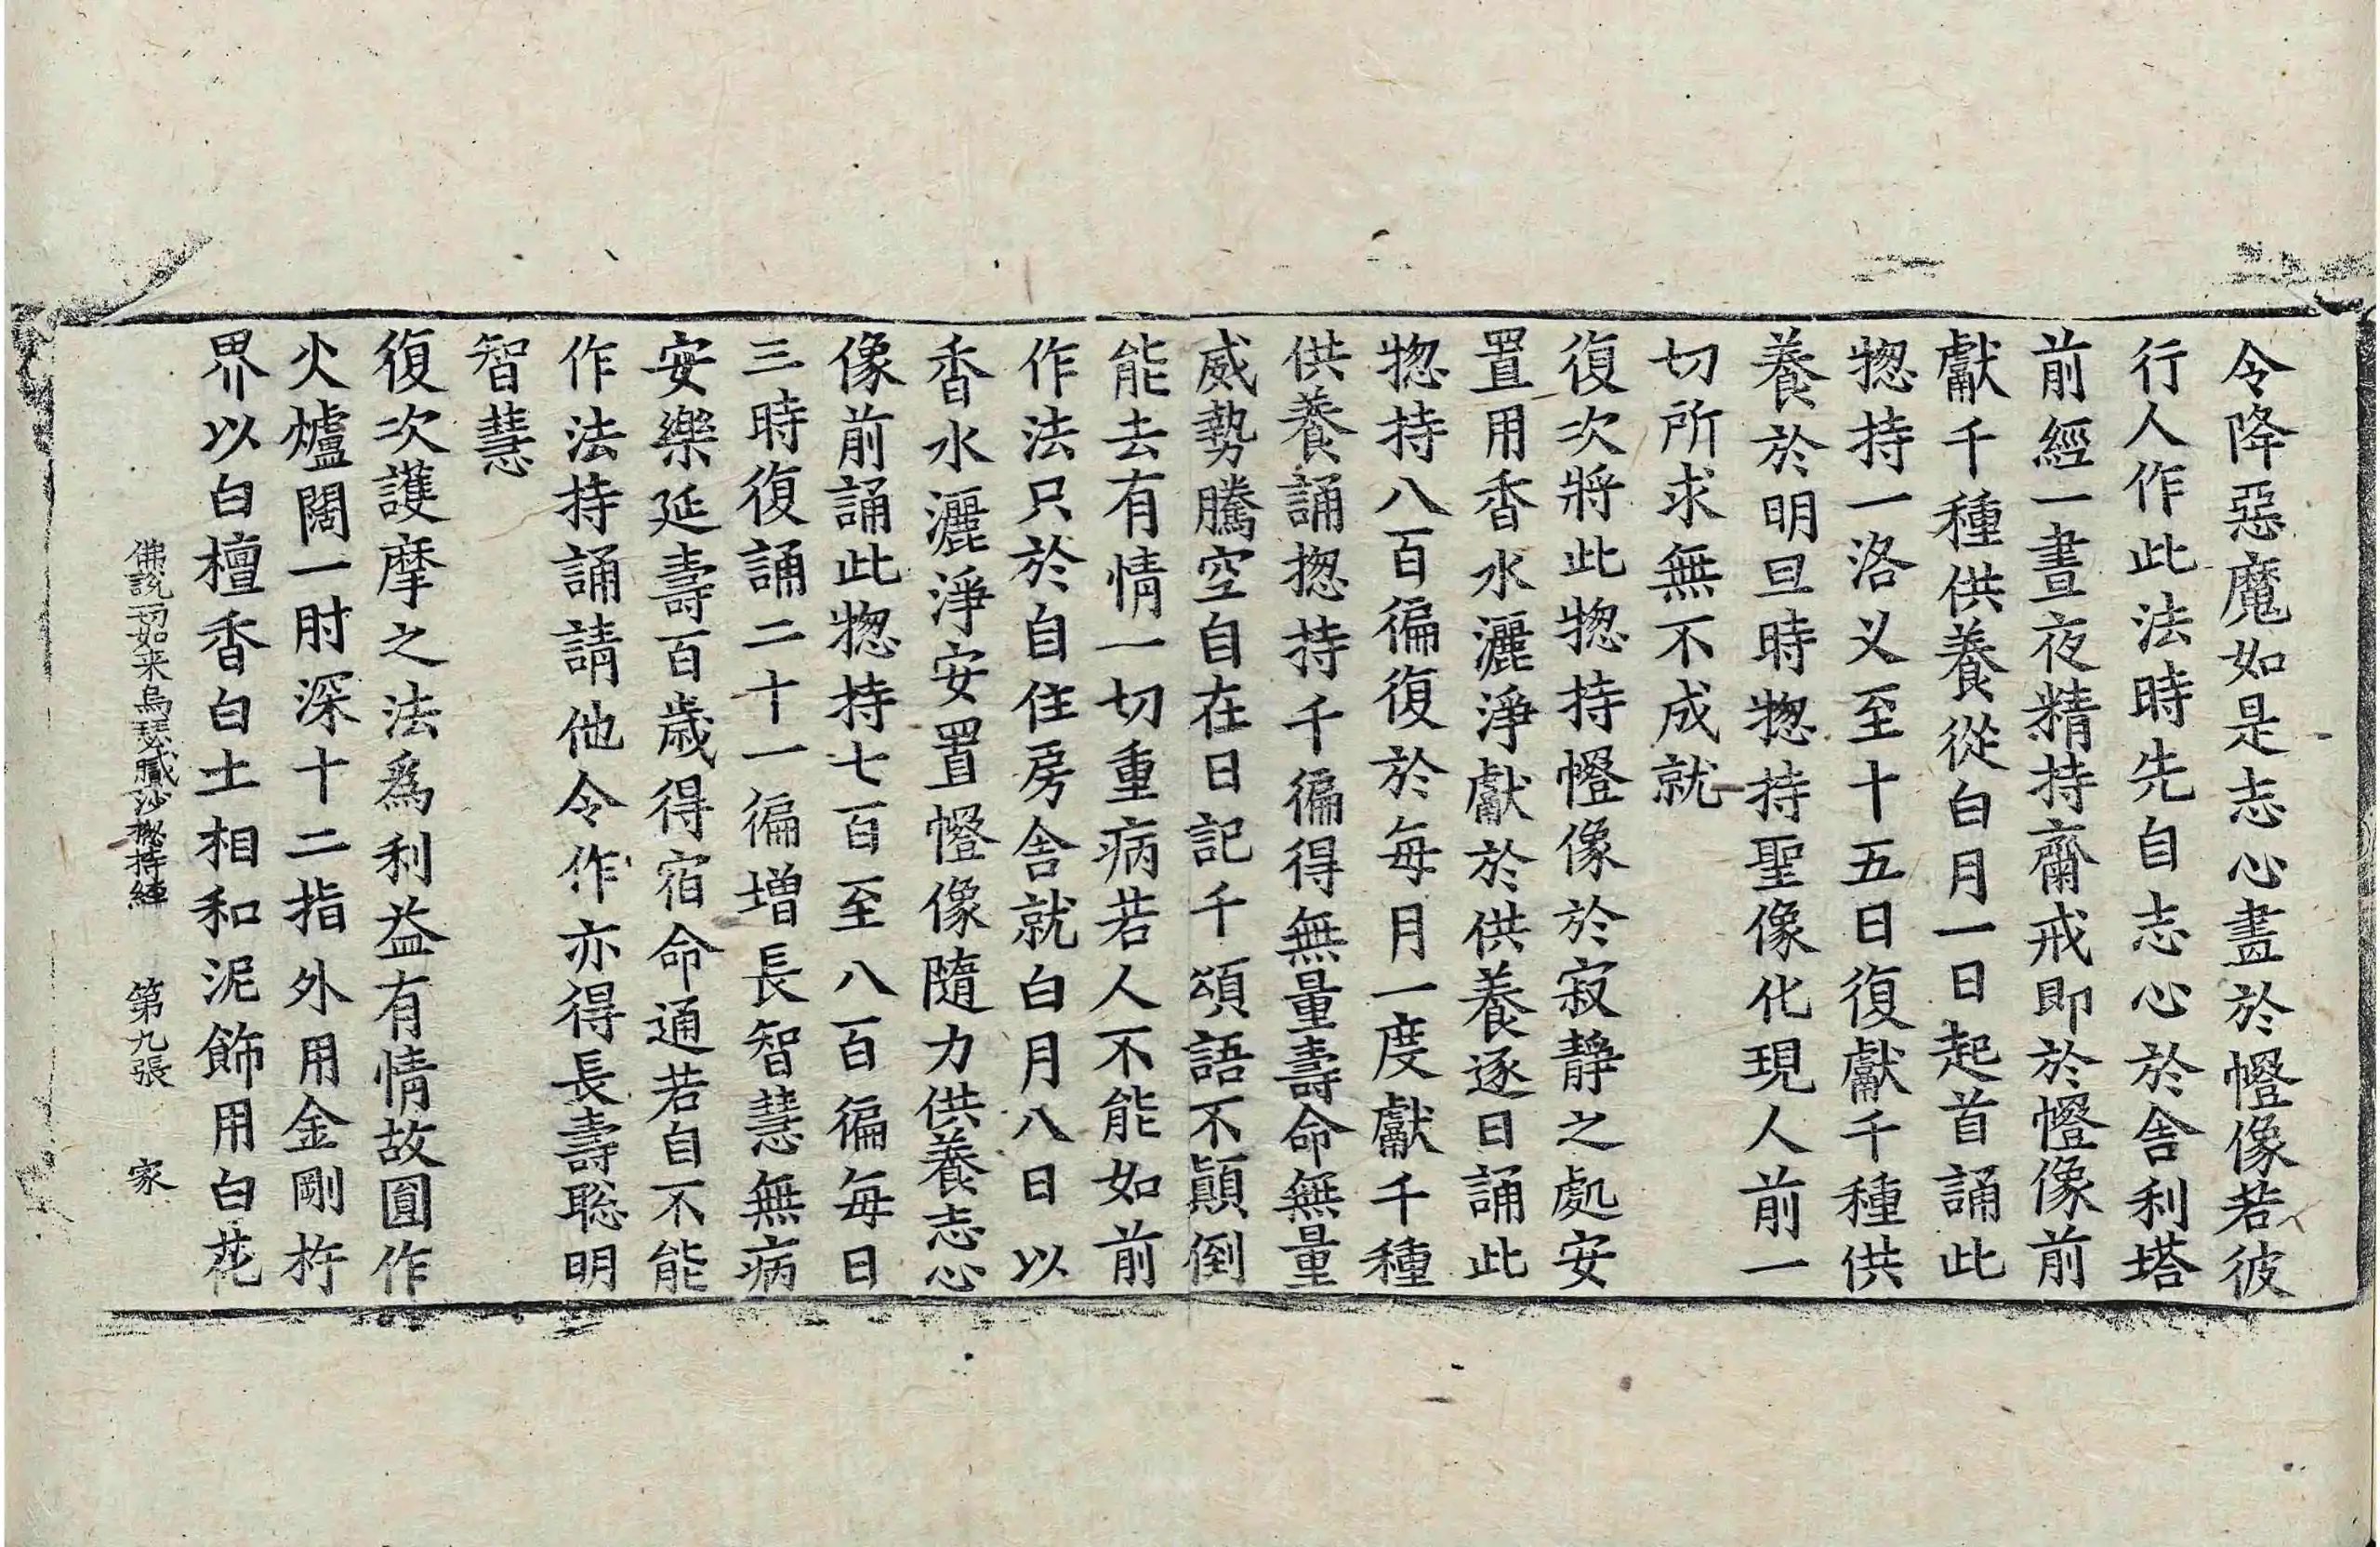 令降惡魔如是志心畫於㡧像若彼
行人作此法時先自志心於舎利塔
前經一晝夜精持齋戒即於㡧像前
獻千種供養從白月一日起首誦此
揔持一洛义至十五日復獻千種供
養於明旦時揔持聖像化現人前一
切所求無不成就
復次將此揔持㡧像於寂靜之處安
置用香水灑淨獻於供養逐日誦此
揔持八百徧復於每月一度獻千種
供養誦揔持千徧得無量壽命無量
威勢騰空自在日記千頌語不顚倒
能去有情一切重病若人不能如前
作法只於自住房舎就白月八日以
香水灑淨安置㡧像隨力供養志心
像前誦此揔持七百至八百徧每日
三時復誦二十一徧增長智慧無病
安樂延壽百歲得宿命通若自不能
作法持誦請他令作亦得長壽聡明
智慧
復次護摩之法爲利益有情故圓作
火爐闊一肘深十二指外用金剛杵
界以白檀香白土相和泥飾用白花
佛說一切如来烏瑟膩沙揔持經 第九張 家